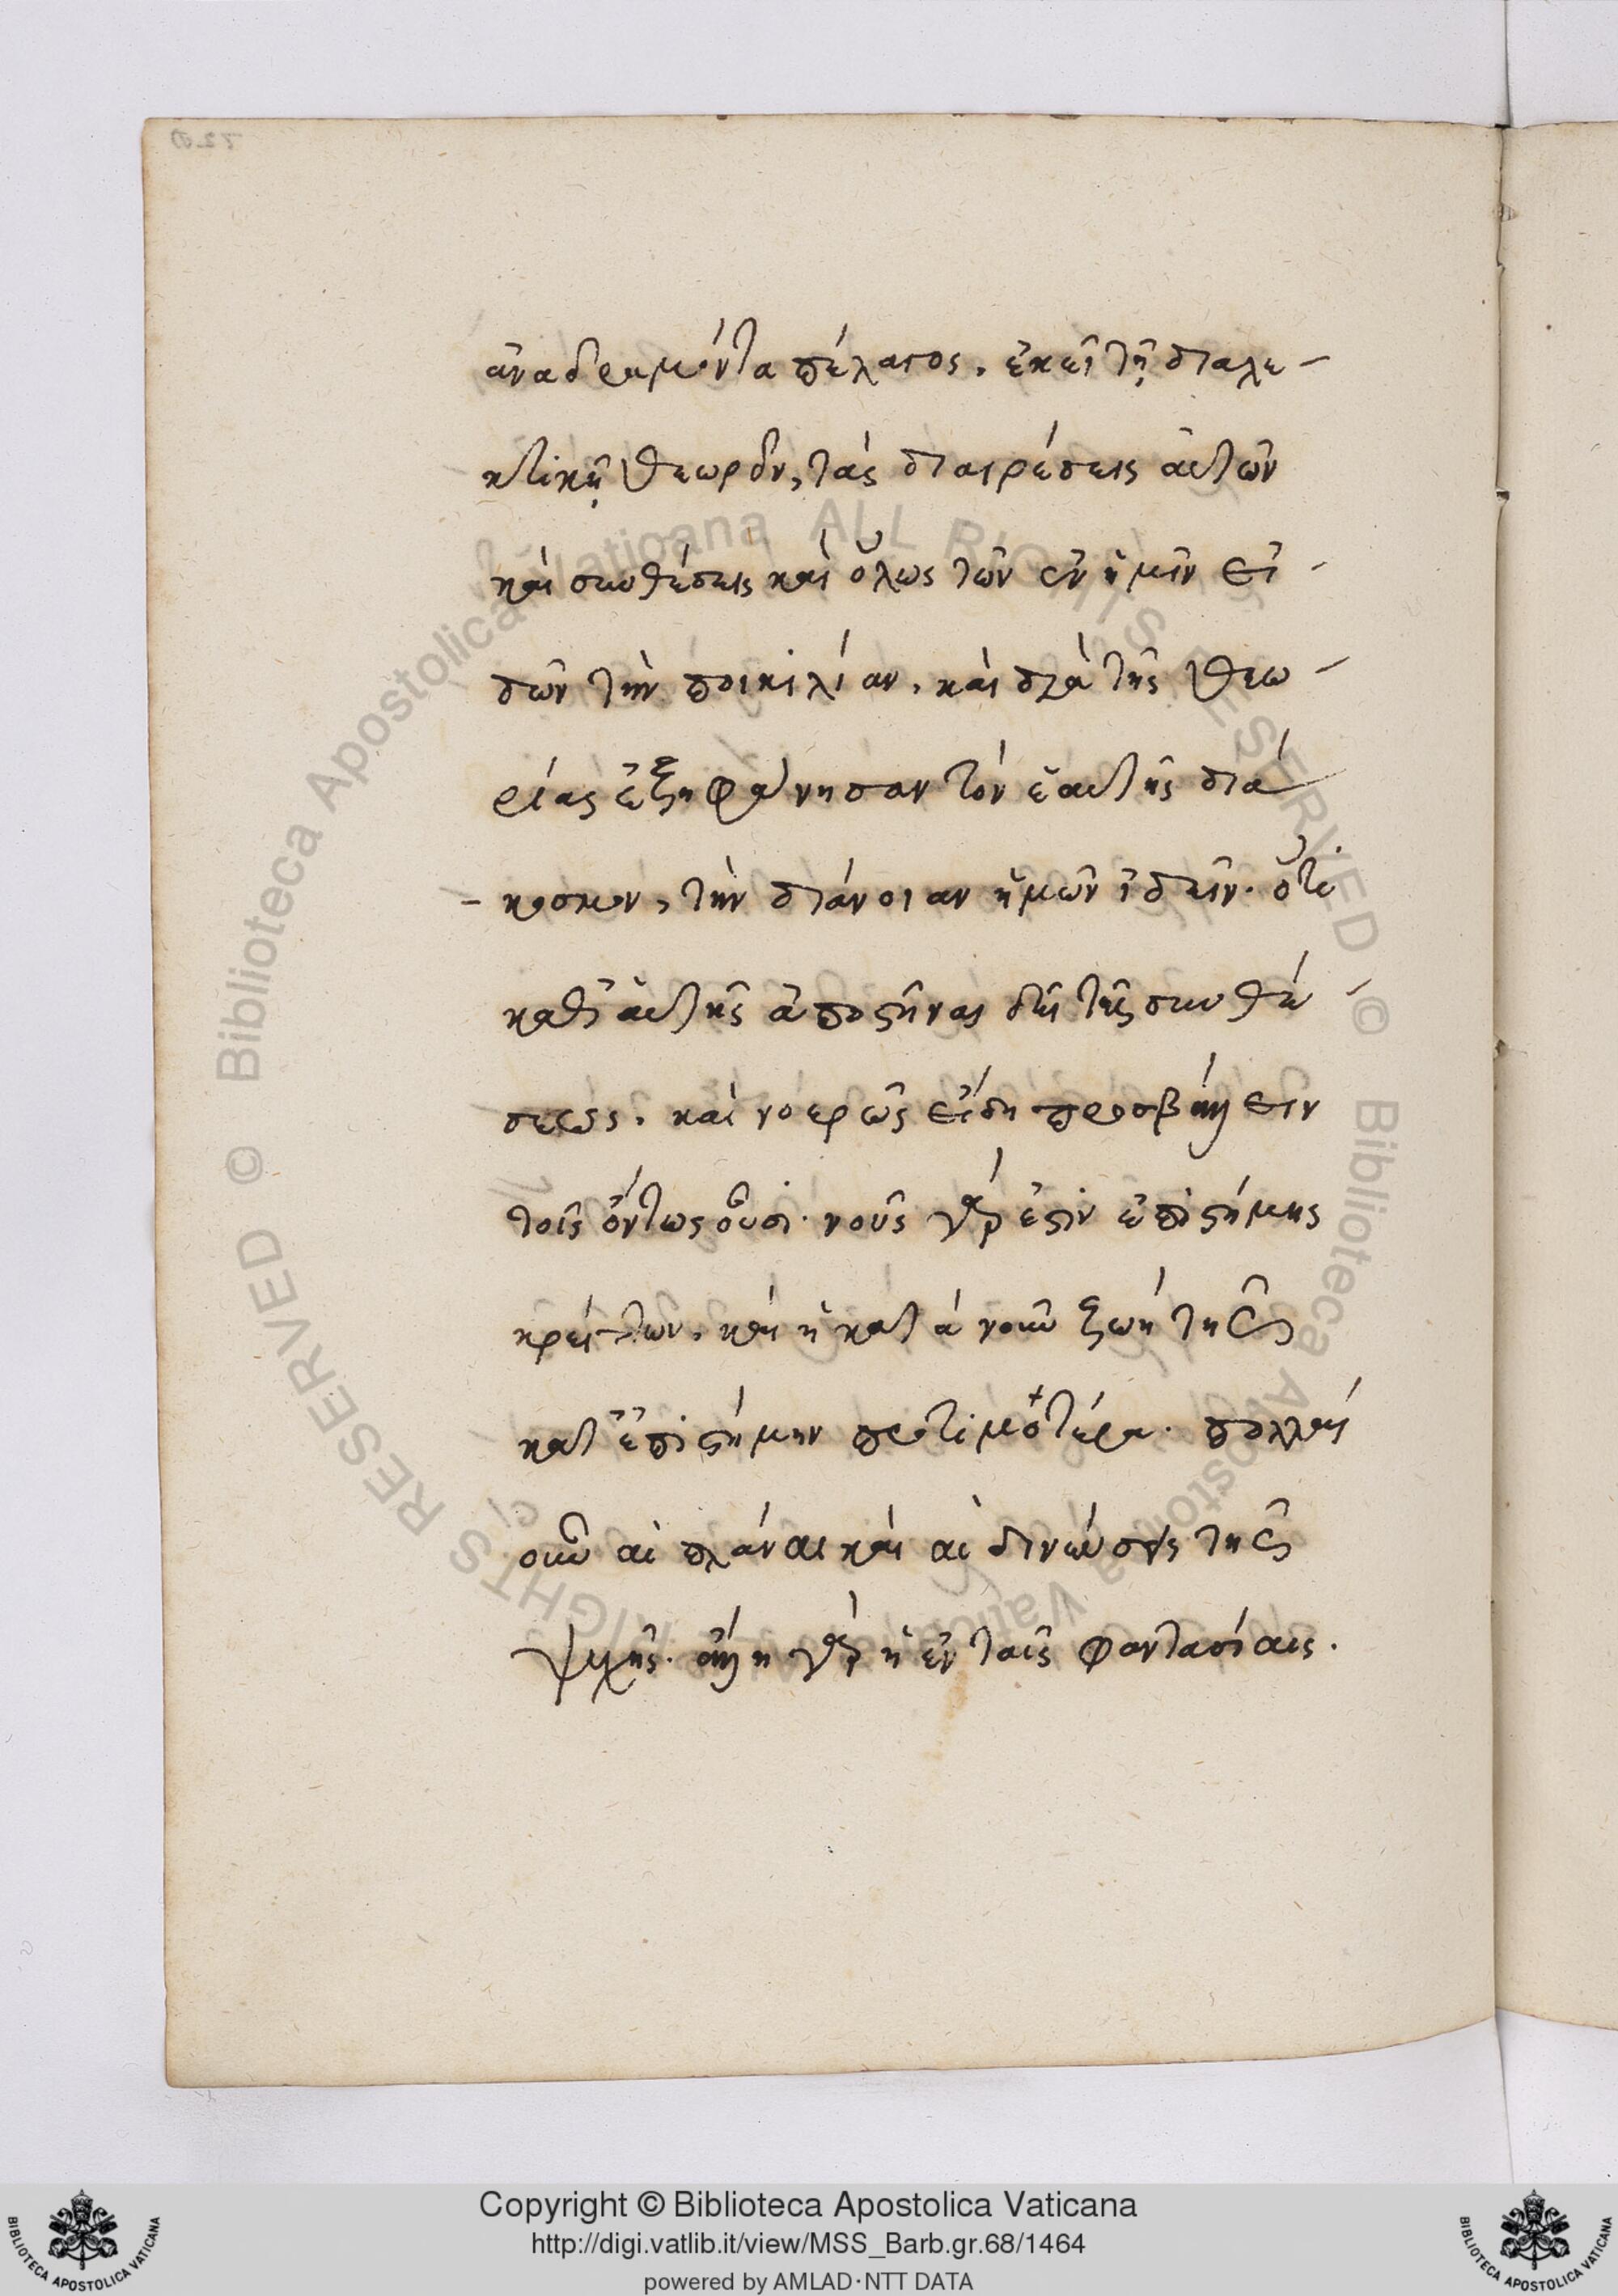 ἀναδραμόντα πέλαγος. ἐκεῖ τῇ διαλε-
κτικῇ θεωρεῖν, τὰς διαιρέσεις αὐτῶν
καὶ συνθέσεις καὶ ὅλως τῶν ἐν ἡμῖν εἰ-
δῶν τὴν ποικιλίαν. καὶ διὰ τῆς θεω-
ρίας ἐξηφάνησαν τὸν ἑαυτῆς διά-
- κοσμον, τὴν διάνοιαν ἡμῶν ἰδεῖν. ὅτε
καθ' αὐτῆς ἀποστῆναι δεῖ τῆς συνθέ-
σεως. καὶ νοερῶς εἴδη προσβάλλειν
τοῖς ὄντως οὖσι. νοῦς γάρ ἐστιν ἐπιστήμης
κρείττων. καὶ ἡ κατὰ νοῦν ζωὴ τῆς
κατ' ἐπιστήμην προτιμοτέρα. πολλαὶ
οὖν αἱ πλάναι καὶ αἱ δινεύσεις τῆς
ψυχῆς. ἄλλη γὰρ ἡ ἐν ταῖς φαντασίαις.
Copyright © Biblioteca Apostolica Vaticana
http://digi.vatlib.it/view/MSS_Barb.gr.68/1464
powered by AMLAD·NTT DATA
© Biblioteca Apostolica Vaticana ALL RIGHTS RESERVED © Biblioteca Apostolica Vaticana ALL RIGHTS RESERVED
BIBLIOTECA APOSTOLICA VATICANA
BIBLIOTECA APOSTOLICA VATICANA